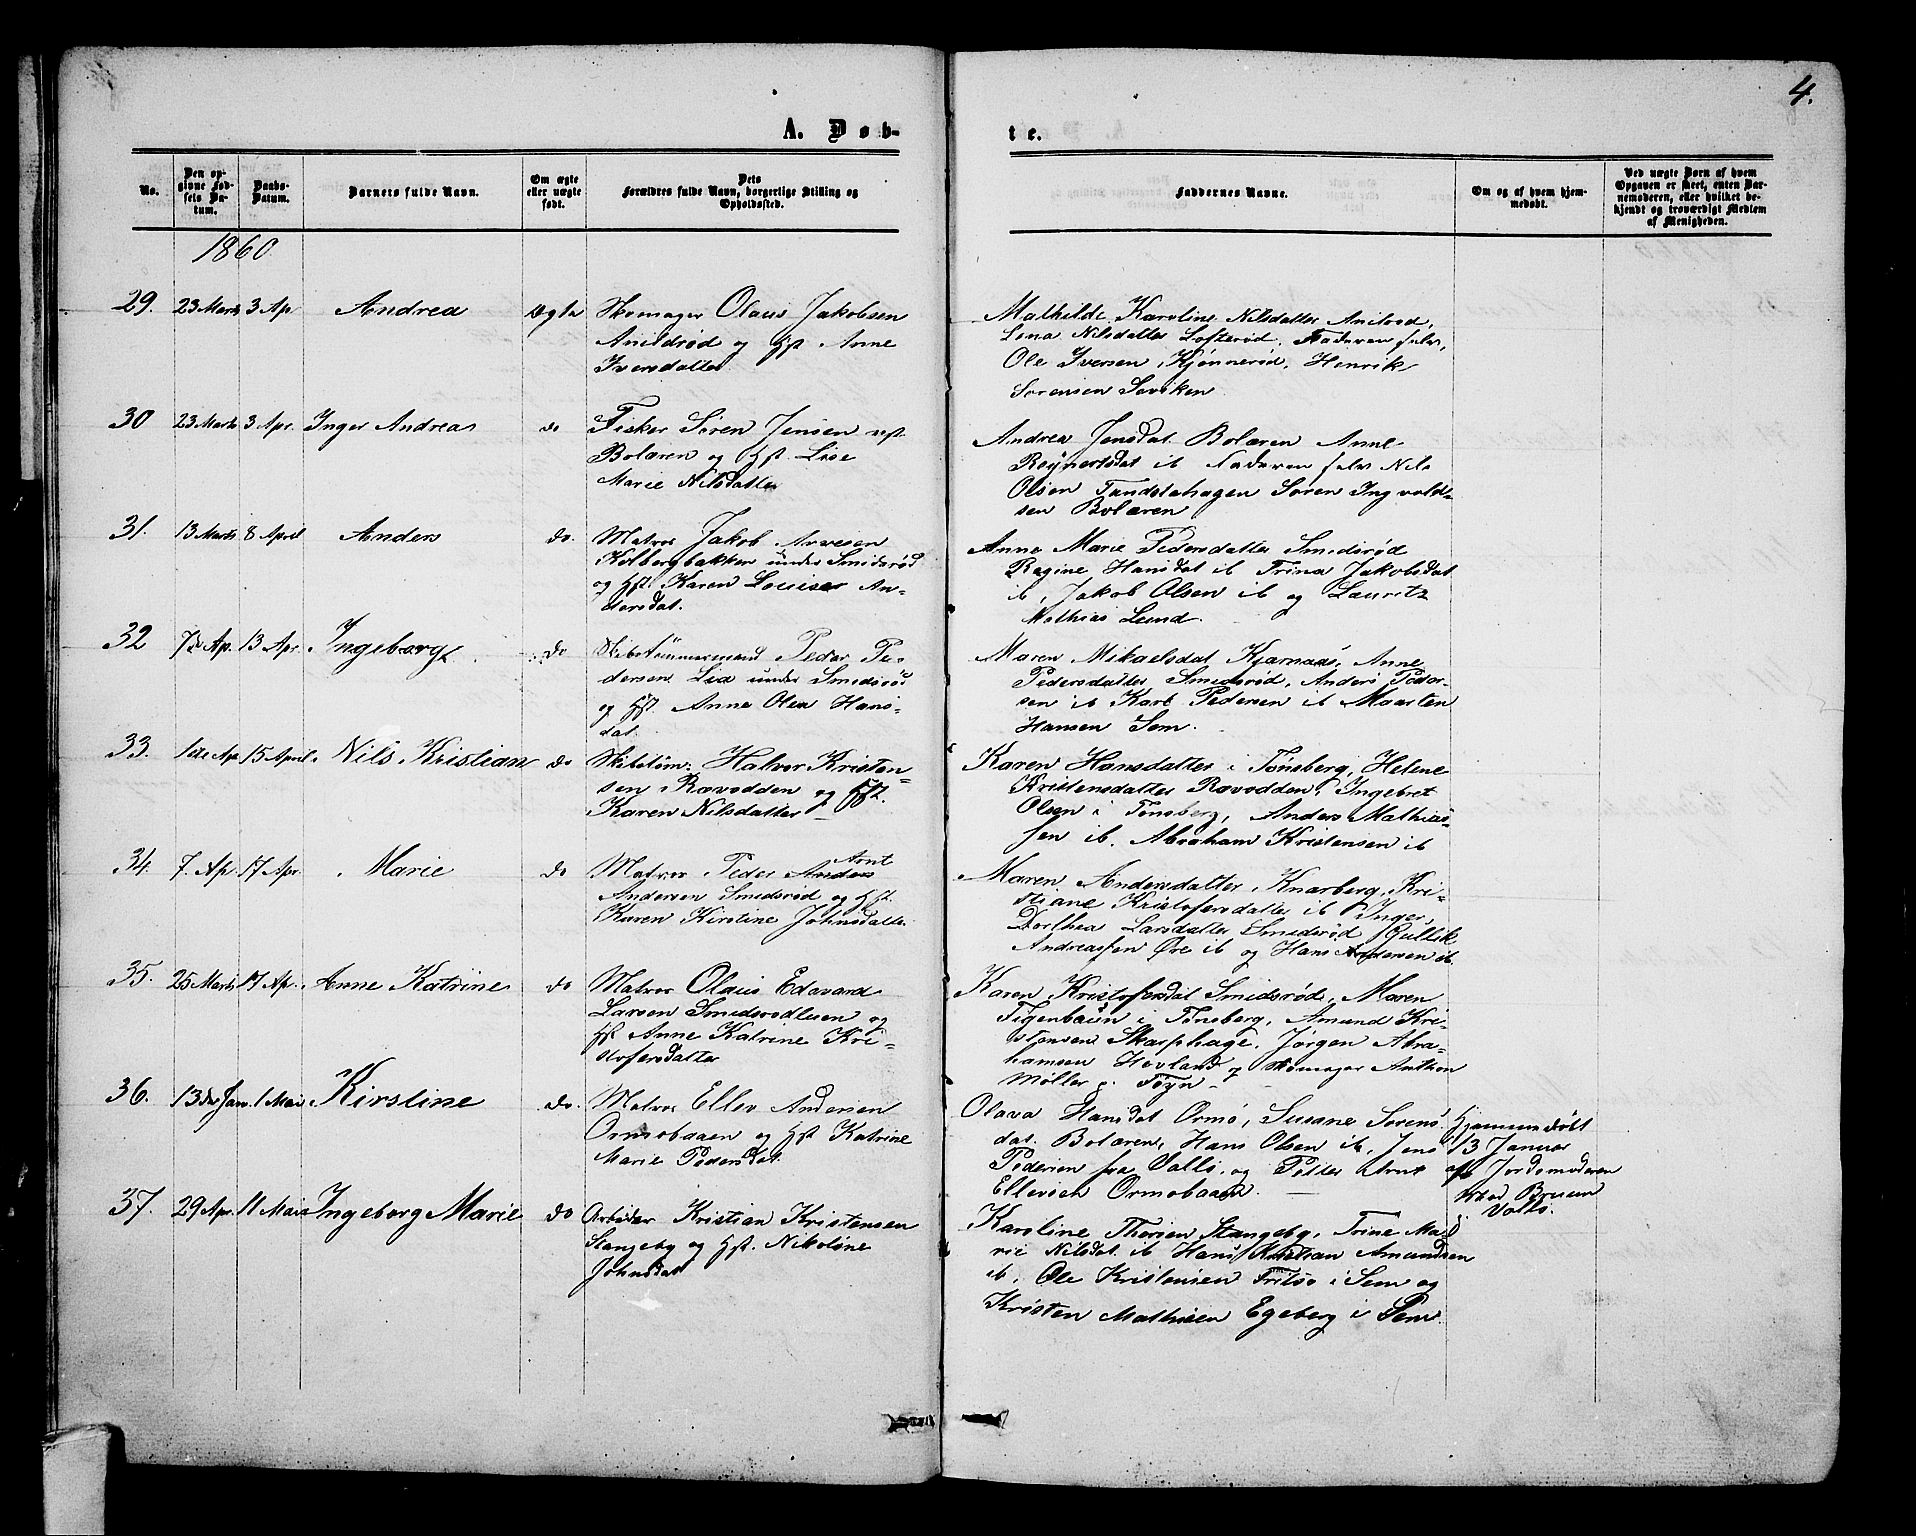 4.
A. Døb-
te.
No.
Den op-
givne Fød-
sels Da-
tum.
Daabs-
Datum.
Barnets fulde Navn.
Om ægte
eller uægte
født.
Dets
Forældres fulde Navn, borgerlige Stilling og
Opholdssted.
Faddernes Navne.
Om og af hvem hjem-
medøbt.
Ved uægte Børn af hvem
Opgaven er skeet, enten Bar-
nemoderen, eller hvilket be-
kjendt og troværdigt Medlem
af Menigheden.
1860
29. 23 Marts 3 Ap Andrea Ægte
Skomager Olaus Jakobsen
Anildrød og Hst. Anne
Iversdatter
Mathilde Karoline Nilsdatter Anilrød,
Lena Nilsdatter Lofterød. Faderen selv,
Ole Iversen, Kjønnerød, Henrik
Sørensen Saviken
30 23 Marts 3 Apr. Inger Andrea do
Fisker Søren Jensen
Bolæren og Hst. Lise
Marie Nilsdatter
Andrea Jensdat. Bolæren Anne
Reynertsdat ib Faderen selv Nils
Olsen Tandstahagen Søren Ingvald-
sen Bolæren
31. 13 Marts 8 April Anders do.
Matros Jakob Arvesen
Kolbergbakken under Smidsrød
og Hst. Karen Louise An-
dersdat.
Anne Marie Pedersdatter Smidsrød
Ragine Hansdat ib Trina Jakobsdat
ib, Jakob Olsen ib og Lauritz
Mathias Lund.
32 7de Ap. 13 Apr. Ingeborg do
Skibstømmermand Peder Pe-
dersen Lia under Smidsrød
og Hst. Anne Olea Hans-
dat.
Maren Mikaelsdat Kjærnaas, Anne
Pedersdatter Smidsrød, Anders Peder-
sen ib Karl Pedersen ib Maarten
Hansen Sem.
33. 1ste Ap 15 April. Nils Kristian do
Skibstøm: Halvor Kristen-
sen Ravodden og Hst.
Karen Nilsdatter
Karen Hansdatter i Tønsberg, Helene
Kristensdatter Ravodden, Ingebret
Olsen i Tønsberg, Anders Mathias-
sen ib. Abraham Kristensen ib
34. 7. Ap. 17 Apr. Marie do
Arnt
Matros Peder Anders
Andersen Smidsrød og Hst.
Karen Kirstine Johnsdatter
Maren Andersdatter, Knarberg, Kri-
stiane Kristofersdatter ib Inger
Dorthea Larsdatter Smidsrød Gullik
Andreassen Øre ib og Hans Andersen ib.
35. 25 Marts 17 Ap. Anne Katrine do
Matros Olaus Edavard
Larsen Smidsrødløen og
Hst Anne Katrine Kri-
stofersdatter
Karen Kristofersdat Smidsrød, Maren
Figenbaum i Tønsberg, Amund Kri-
stensen Skarphage. Jørgen Abra-
hamsen Hovland og Skomager Anthon
Møller p. Føyn
36. 13de Jan. 1 Mai Kirstine do.
Matros Ellev Andersen
Ormobaaen og Hst Katrine
Marie Pedersdat.
Olava Hansdat Ormø, Susane Sørens-
dat. Bolæren, Hans Olsen ib, Jens
Pedersen fra Vallø, og Petter Arnt
Ellevsen Ormobaaen.
Hjemmedøbt
13 Januar
af Jordemoderen
Bruun
Vallø.
37. 29 Apr. 11 Mai Ingeborg Marie do
Arbeider Kristian Kristensen
Stangeby og Hst. Nikoline
Johnsdat
Karoline Thorsen Stangeby, Trine Ma-
rie Nilsdat. ib Hans Kristian Amundsen
ib, Ole Kristensen Fritsø i Sem og
Kristen Mathisen Egeberg i Sem.